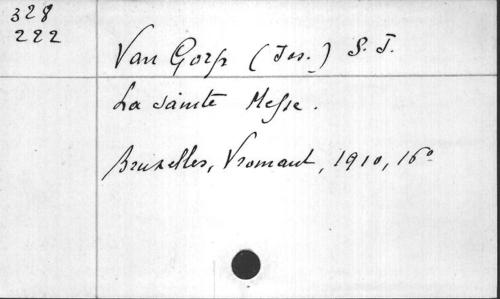 328
222
Van Gorp (Jos.) S. J.
La sainte Messe.
Bruxelles, Vromant, 1910, 16°